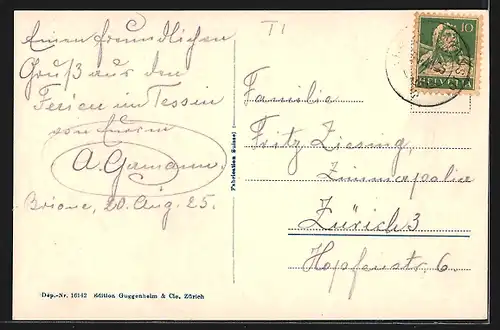 Einen freundlichen
Gruß aus den
Ferien im Tessin
von Eurem
A. Germann.
Brione, 20. Aug. 25.
T I
10
HELVETIA
Fabrication Suisse
Familie
Fritz Ziesing,
Zimmerpolier
Zürich 3
Hopfenstr. 6.
Dép.-Nr. 16142 Edition Guggenheim & Cie, Zürich